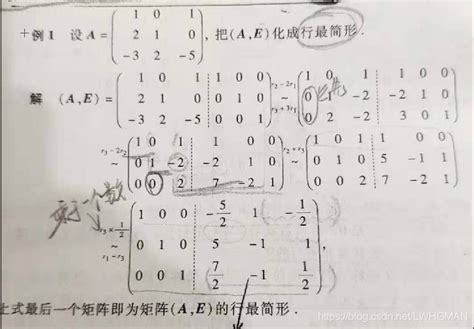 +例1 设 A = ( 1 0 1 ; 2 1 0 ; -3 2 -5 ), 把(A,E)化成行最简形.
解 (A,E) = ( 1 0 1 1 0 0 ; 2 1 0 0 1 0 ; -3 2 -5 0 0 1 ) r₂-2r₁ r₃+3r₁ ~ ( 1 0 1 1 0 0 ; 0 1 -2 -2 1 0 ; 0 2 -2 3 0 1 )
r₃-2r₂ ~ ( 1 0 1 1 0 0 ; 0 1 -2 -2 1 0 ; 0 0 2 7 -2 1 ) r₂+r₃ ~ ( 1 0 1 1 0 0 ; 0 1 0 5 -1 1 ; 0 0 2 7 -2 1 )
乘于一个数
r₃×1/2 r₁-r₃ ~ ( 1 0 0 -5/2 1 -1/2 ; 0 1 0 5 -1 1 ; 0 0 1 7/2 -1 1/2 ),
上式最后一个矩阵即为矩阵(A,E)的行最简形.
https://blog.csdn.net/LWHGMAN